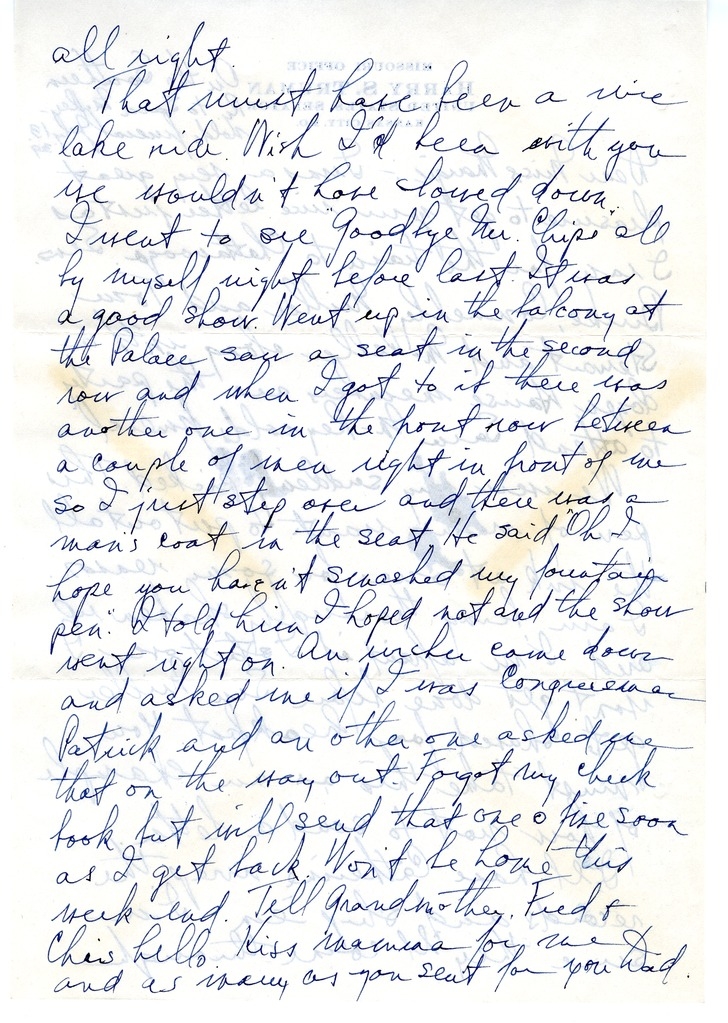 all right.
That must have been a nice
lake ride. Wish I'd been with you
we wouldn't have slowed down.
I went to see "Goodbye Mr. Chips" all
by myself night before last. It was
a good show. Went up in the balcony at
the Palace saw a seat in the second
row and when I got to it there was
another one in the front row between
a couple of men right in front of me
so I just step over and there was a
man's coat in the seat. He said "Oh I
hope you haven't smashed my fountain
pen." I told him I hoped not and the show
went right on. An usher came down
and asked me if I was Congressman
Patrick and an other one asked me
that on the way out. Forgot my check
book but will send that one o five soon
as I get back. Won't be home this
week end. Tell Grandmother, Fred &
Chris hello. Kiss mamma for me
and as many as you sent for you Dad.
MISSOURI OFFICE
HARRY S. TRUMAN